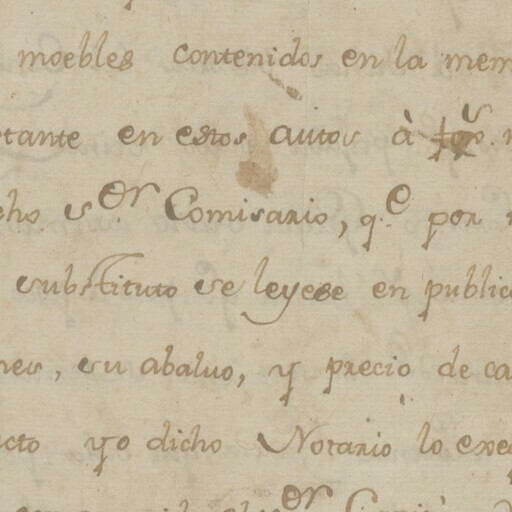 moebles contenidos en la mem
tante en estos autos à
cho S.or Comisario, q.e por
substituto se leyese en public
nes, su abaluo, y precio de ca
cto yo dicho Notario lo exe